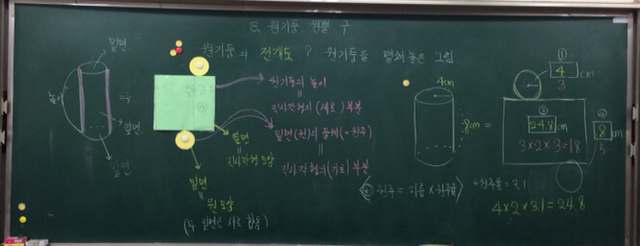 8. 원기둥, 원뿔, 구
원기둥의 전개도 ? 원기둥을 펼쳐 놓은 그림
밑면
높이
옆면
밑면
원기둥의 높이
=
직사각형의 (세로) 부분
밑면(원)의 둘레(=원주)
=
직사각형의 (가로) 부분
밑면
밑면
원 모양
(두 밑면은 서로 합동)
4cm
8cm
=
①
4 cm
3
②
24.8 cm
3×2×3=18
③
8 cm
5
원주 = 지름 × 원주율
*원주율=3.1
4×2×3.1=24.8